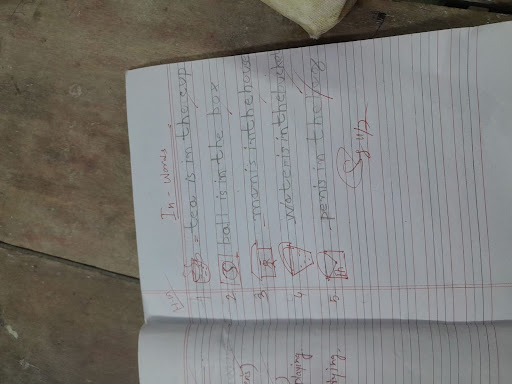 In - Words
H.W
1. tea is in the cup
2. ball is in the box
3. man is in the house
4. water is in the
5. pen is in the
playing